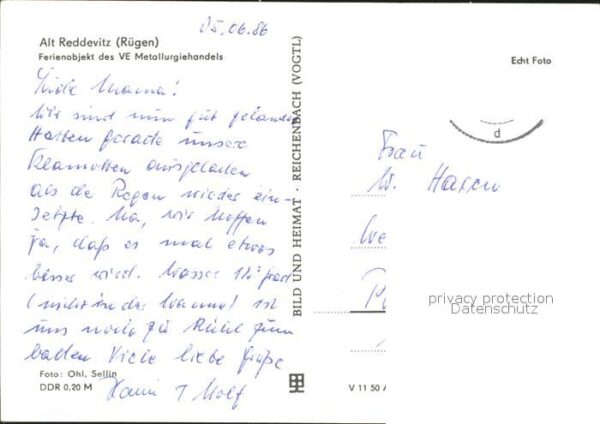 05.06.86
Alt Reddevitz (Rügen)
Ferienobjekt des VE Metallurgiehandels
Liebe Mama!
Wir sind nun gut gelandet
Hatten gerade unsere
Klamotten ausgeladen
als de Regen wieder ein-
setzte. Na, wir hoffen
ja, daß es mal etwas
besser wird. Wasser 12 grad
(nicht in der Wanne) ist
uns noch zu kühl zum
baden Viele liebe Grüße
Foto: Ohl, Sellin
DDR 0,20 M
Wolf
BILD UND HEIMAT · REICHENBACH (VOGTL)
Echt Foto
d
Frau
We
privacy protection
Datenschutz
V 11 50